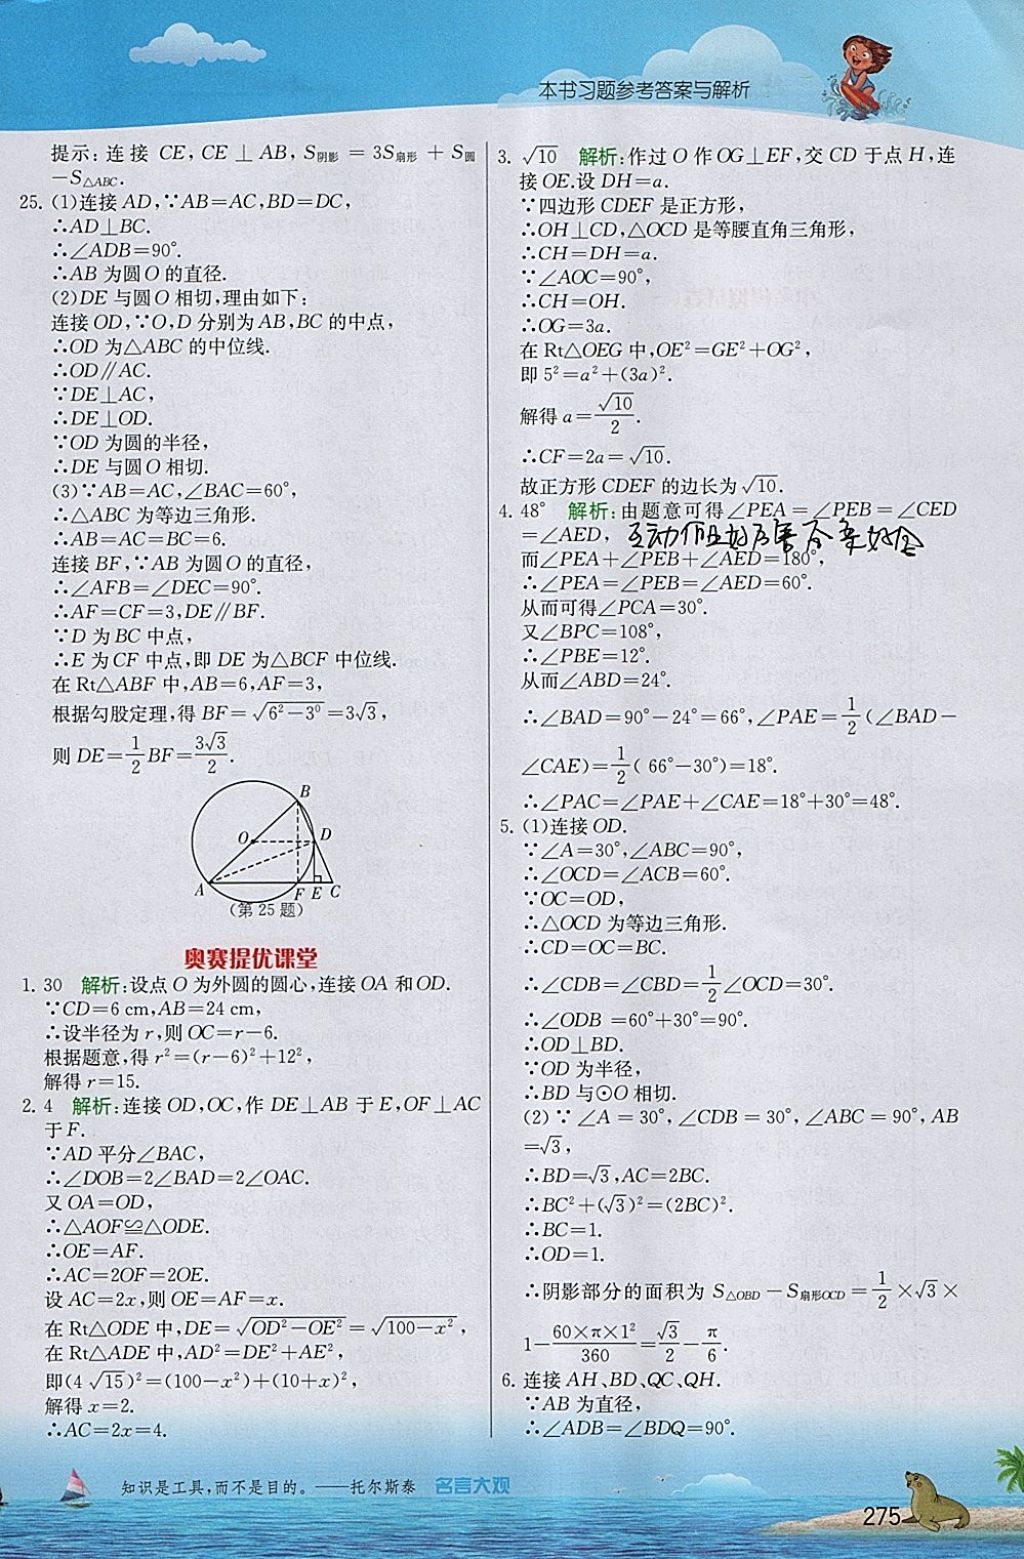 本书习题参考答案与解析
提示:连接 CE,CE⊥AB,S阴影=3S扇形+S圆
-S△ABC.
25. (1)连接 AD,∵AB=AC,BD=DC,
∴AD⊥BC.
∴∠ADB=90°.
∴AB 为圆 O 的直径.
(2)DE 与圆 O 相切,理由如下:
连接 OD,∵O,D 分别为 AB,BC 的中点,
∴OD 为△ABC 的中位线.
∴OD∥AC.
∵DE⊥AC,
∴DE⊥OD.
∵OD 为圆的半径,
∴DE 与圆 O 相切.
(3)∵AB=AC,∠BAC=60°,
∴△ABC 为等边三角形.
∴AB=AC=BC=6.
连接 BF,∵AB 为圆 O 的直径,
∴∠AFB=∠DEC=90°.
∴AF=CF=3,DE∥BF.
∵D 为 BC 中点,
∴E 为 CF 中点,即 DE 为△BCF 中位线.
在 Rt△ABF 中,AB=6,AF=3,
根据勾股定理,得 BF=√(6²-3⁰)=3√3,
则 DE=1/2BF=3√3/2.
B
O
D
A
F E C
(第 25 题)
奥赛提优课堂
1. 30 解析:设点 O 为外圆的圆心,连接 OA 和 OD.
∵CD=6 cm,AB=24 cm,
∴设半径为 r,则 OC=r-6.
根据题意,得 r²=(r-6)²+12²,
解得 r=15.
2. 4 解析:连接 OD,OC,作 DE⊥AB 于 E,OF⊥AC
于 F.
∵AD 平分∠BAC,
∴∠DOB=2∠BAD=2∠OAC.
又 OA=OD,
∴△AOF≌△ODE.
∴OE=AF.
∴AC=2OF=2OE.
设 AC=2x,则 OE=AF=x.
在 Rt△ODE 中,DE=√(OD²-OE²)=√(100-x²),
在 Rt△ADE 中,AD²=DE²+AE²,
即(4√15)²=(100-x²)+(10+x)²,
解得 x=2.
∴AC=2x=4.
3. √10 解析:作过 O 作 OG⊥EF,交 CD 于点 H,连
接 OE.设 DH=a.
∵四边形 CDEF 是正方形,
∴OH⊥CD,△OCD 是等腰直角三角形,
∴CH=DH=a.
∵∠AOC=90°,
∴CH=OH.
∴OG=3a.
在 Rt△OEG 中,OE²=GE²+OG²,
即 5²=a²+(3a)².
解得 a=√10/2.
∴CF=2a=√10.
故正方形 CDEF 的边长为√10.
4. 48° 解析:由题意可得∠PEA=∠PEB=∠CED
=∠AED,
而∠PEA+∠PEB+∠AED=180°,
∴∠PEA=∠PEB=∠AED=60°.
从而可得∠PCA=30°.
又∠BPC=108°,
∴∠PBE=12°.
从而∠ABD=24°.
∴∠BAD=90°-24°=66°,∠PAE=1/2(∠BAD-
∠CAE)=1/2( 66°-30°)=18°.
∴∠PAC=∠PAE+∠CAE=18°+30°=48°.
5. (1)连接 OD.
∵∠A=30°,∠ABC=90°,
∴∠OCD=∠ACB=60°.
∵OC=OD,
∴△OCD 为等边三角形.
∴CD=OC=BC.
∴∠CDB=∠CBD=1/2∠OCD=30°.
∴∠ODB =60°+30°=90°.
∴OD⊥BD.
∵OD 为半径,
∴BD 与⊙O 相切.
(2) ∵ ∠A = 30°,∠CDB = 30°,∠ABC = 90°,AB
=√3,
∴BD=√3,AC=2BC.
∴BC²+(√3)²=(2BC)².
∴BC=1.
∴OD=1.
∴阴影部分的面积为 S△OBD-S扇形OCD=1/2×√3×
1-60×π×1²/360=√3/2-π/6.
6. 连接 AH、BD、QC、QH.
∵AB 为直径,
∴∠ADB=∠BDQ=90°.
知识是工具,而不是目的。——托尔斯泰 名言大观
275